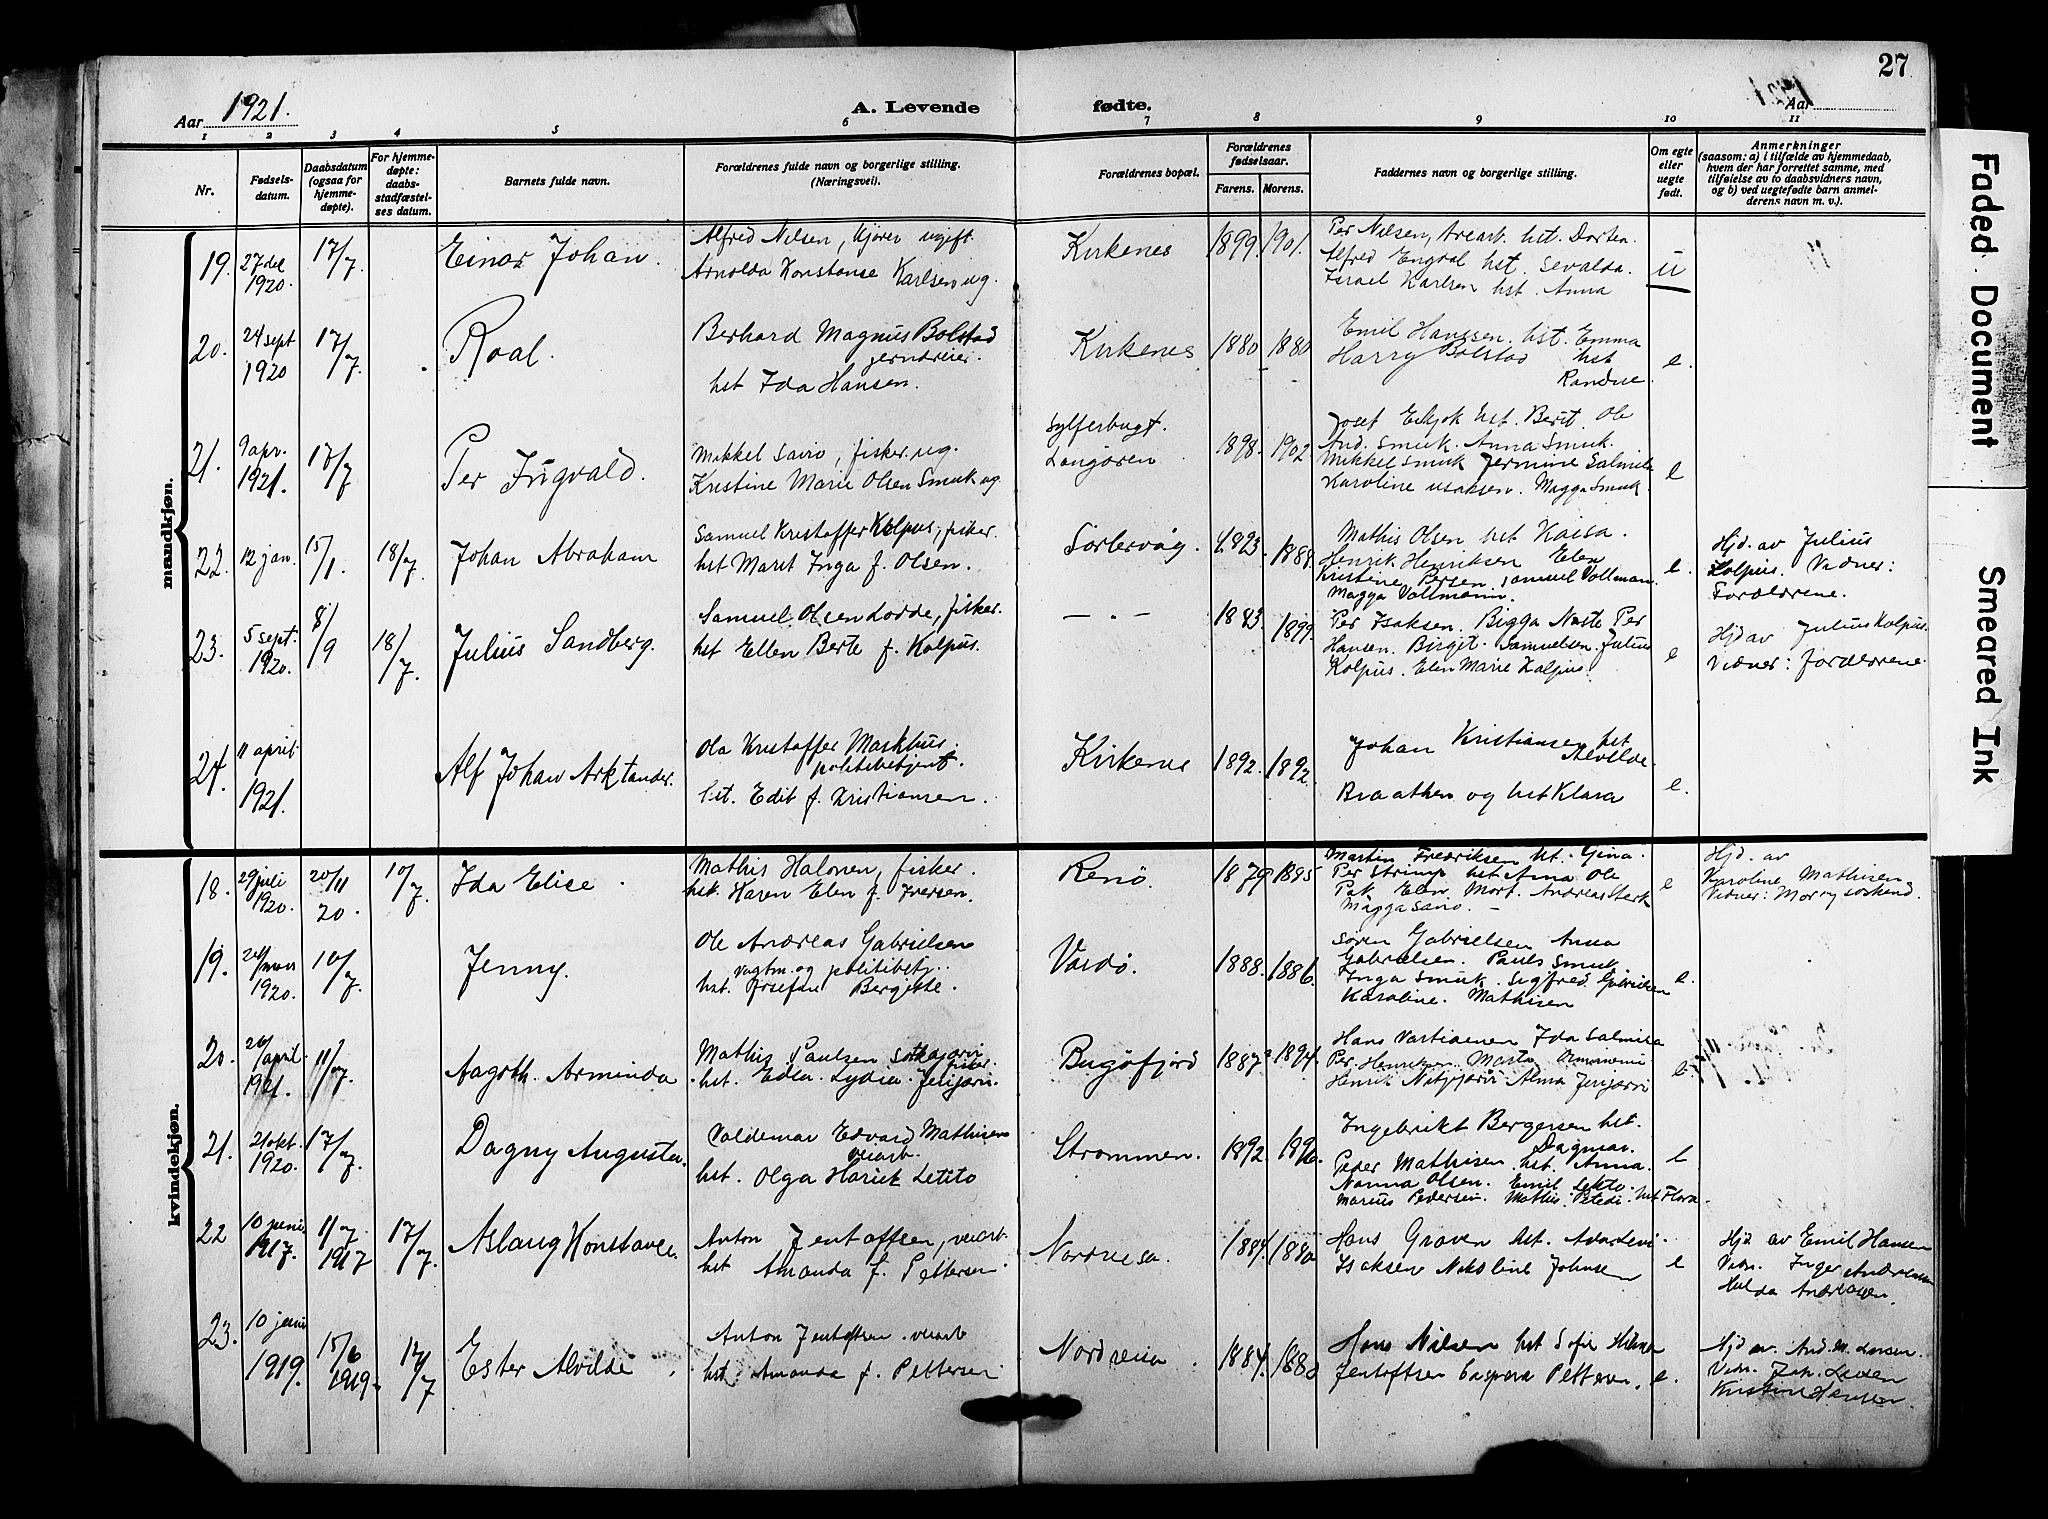 27
Aar 1921.
A. Levende fødte.
Aar
1 2 3 4 5 6 7 8 9 10 11
Nr.
Fødsels-
datum.
Daabsdatum
(ogsaa for
hjemme-
døpte).
For hjemme-
døpte:
daabs-
stadfæstel-
ses datum.
Barnets fulde navn.
Forældrenes fulde navn og borgerlige stilling.
(Næringsvei).
Forældrenes bopæl.
Forældrenes
fødselsaar.
Farens. Morens.
Faddernes navn og borgerlige stilling.
Om egte
eller
uegte
født.
Anmerkninger
(saasom: a) i tilfælde av hjemmedaab,
hvem der har forrettet samme, med
tilføielse av to daabsvidners navn,
og b) ved uegtefødte barn anmel-
derens navn m. v.).
mandkjøn.
19. 27 de 1920. 17/7 Einar Johan.
Alfred Nilsen, kjører ugift
Arnolda Konstanse Karlsen ug.
Kirkenes 1899. 1901.
Per Nilsen, hst. Dorten.
Alfred Engdal hst. Sevalda.
Israel Karlsen hst. Anna
u
20. 24 sept 1920 17/7. Roal.
Berhard Magnus Bolstad
jerndreier.
hst Ida Hansen.
Kirkenes 1880 1880
Emil Hanssen. hst. Emma
Harry Bolstad hst
Randne.
e.
21. 9 apr. 1921. 17/7 Per Ingvald.
Mikkel Sairo, fisker. ug.
Kristine Marie Olsen Smuk ug
Sylferbugt.
Langøren 1898. 1902
Josef Eikjok hst. Berit. Ole
And. Smuk. Anna Smuk.
Mikkel Smuk Jermine Salmila
Karoline Isaksen. Magga Smuk.
e
22. 12 jan. 15/1. 18/7. Johan Abraham
Samuel Kristoffer Kolpus, fisker.
hst Marit Inga f. Olsen.
Sørlervåg. 1893. 1888.
Mathis Olsen hst Kaisa.
Henrik Henriksen Elen
Kristine Persen, Samuel Vollman.
Magga Vollmann.
e.
Hjd. av Julius
Kolpus. Vidner:
Forældrene.
23. 5 sept. 1920. 8/9 18/7. Julius Sandberg.
Samuel Olsen Lodde, fisker.
hst Ellen Berte f. Kolpus.
— " — 1883. 1899
Per Isaksen. Bigga Neste Per
Hansen. Birgit. Samuelsen. Julius
Kolpus. Elen Marie Kolpus.
e
Hjd av Julius Kolpus.
Vidner: forældrene.
24. 11 april. 1921. Alf Johan Arktander.
Ola Kristoffer Markhus,
politibetjent.
hst. Edit f. Kristiansen.
Kirkenes 1892. 1892.
Johan Kristiansen hst
Alvilde.
Braathen og hst Klara
e.
kvindekjøn.
18. 29 juli 1920. 20/11 20. 10/7. Ida Elise.
Mathis Halonen, fisker.
hst. Karen Elen f. Iversen.
Renø. 1879 1885
Martin Fredriksen hst. Gina.
Per Strimp hst Anna Ole
Pak. Elen Mort. Andreas Sterk
Magga Sairo. —
e
Hjd. av
Karoline Mathisen
Vidner: Mor og søskend.
19. 1920. 10/7. Jenny.
Ole Andreas Gabrielsen
vagtm. og politibetj..
hst. Josefine Bergitte.
Vardø. 1888. 1886.
Søren Gabrielsen Anna
Gabrielsen. Pauls Smuk
Inga Smuk. Sigfred Gabrielsen
Karoline. Mathisen
e.
20. 26/april 1921. 11/7. Aagoth. Arminda
Mathis Paulsen
hst. Edea. Lydia. Jerijærvi.
Bugøfjord 1887 1894.
Hans Ida Salmila
Per Henriksen Marta
Henrik Alma Jerijærvi
e.
21. 21 okt. 1920. 17/7. Dagny Augusta.
Valdemar Edvard Mathisen
veiarb.
hst. Olga Harick Letito
Strømmen. 1892. 1896.
Ingebrikt Bergersen hst.
Dagmar.
Peder Mathisen. hst. Anna.
Nanna Olsen. Emil Lekto.
Marius Pedersen. Mathis Petedi. hst Flora.
e
22 10 juni 1917. 11/7. 1917 17/7. Aslaug Konstanse.
Anton Jentoftsen, veiarb.
hst Amanda f. Pettersen
Nordreisa. 1884. 1880
Hans Graven hst.
Isaksen Nikoline Johnsen
e
Hjd av Emil Hansen
Vidn. Inger Andreassen
Hulda Andreasen.
23. 10 juni 1919. 15/6 1919. 17/7 Ester Alvilde.
Anton Jentoftsen. veiarb
hst Amanda f. Pettersen
Nordreisa. 1884. 1880
Hans Nilsen hst Sofie Hilmar
Jentoftsen Caspara Pettersen.
e.
Hjd av. And. M. Larsen.
Vidn. Joh. Larsen
Kristine Hansen.
Faded Document
Smeared Ink